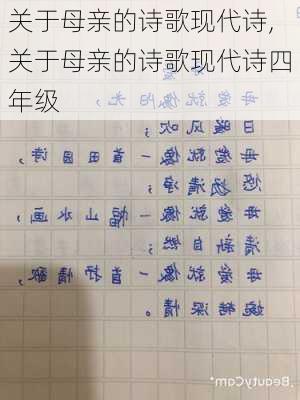 关于母亲的诗歌现代诗,
关于母亲的诗歌现代诗四
年级
母爱就像阳光，
日暖风吹；
母爱就像一首田园诗，
悠清净；
母爱就像一幅山水画，
清新自然；
母爱就像一首抒情歌，
婉转深情。
BeautyCam